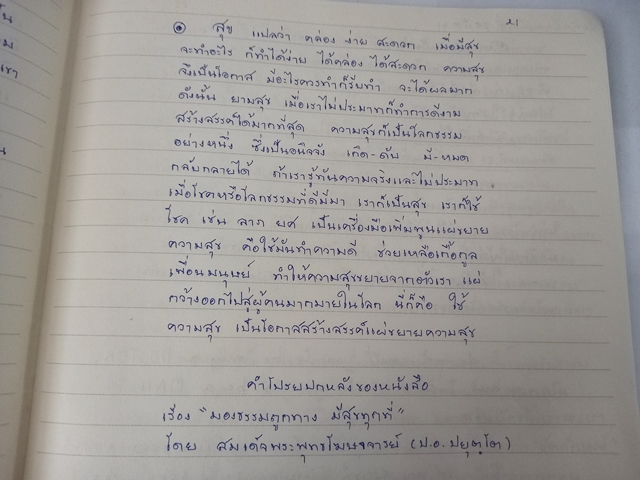 21
สุข แปลว่า คล่อง ง่าย สะดวก เมื่อมีสุข
จะทำอะไร ก็ทำได้ง่าย ได้คล่อง ได้สะดวก ความสุข
จึงเป็นโอกาส มีอะไรควรทำก็รีบทำ จะได้ผลมาก
ดังนั้น ยามสุข เมื่อเราไม่ประมาทก็ทำการดีงาม
สร้างสรรค์ได้มากที่สุด ความสุขก็เป็นโลกธรรม
อย่างหนึ่ง ซึ่งเป็นอนิจจัง เกิด-ดับ มี-หมด
กลับกลายได้ ถ้าเรารู้ทันความจริงและไม่ประมาท
เมื่อโชคหรือโลกธรรมที่ดีมีมา เราก็เป็นสุข เราก็ใช้
โชค เช่น ลาภ ยศ เป็นเครื่องมือเพิ่มพูนแผ่ขยาย
ความสุข คือใช้มันทำความดี ช่วยเหลือเกื้อกูล
เพื่อนมนุษย์ ทำให้ความสุขขยายจากตัวเรา แผ่
กว้างออกไปสู่ผู้คนมากมายในโลก นี่ก็คือ ใช้
ความสุข เป็นโอกาสสร้างสรรค์แผ่ขยายความสุข
คำโปรยปกหลังของหนังสือ
เรื่อง "มองธรรมถูกทาง มีสุขทุกที่"
โดย สมเด็จพระพุทธโฆษาจารย์ (ป.อ.ปยุตฺโต)